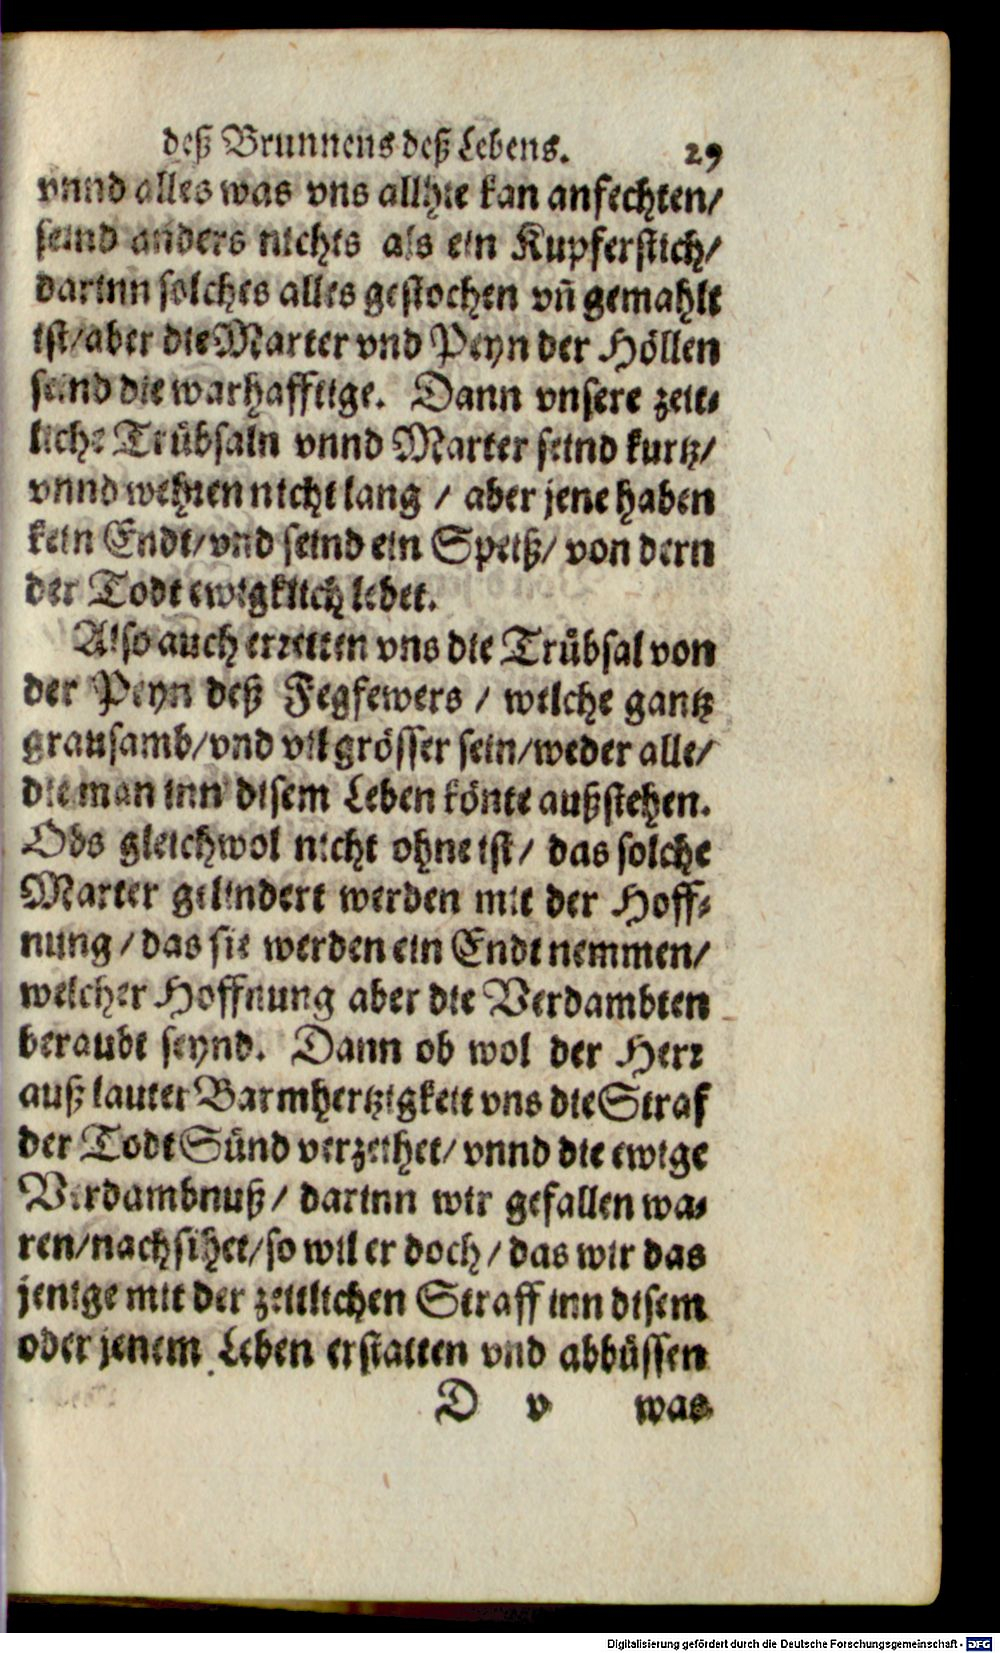 deß Brunnens deß Lebens. 29
vnnd alles was vns allhie kan anfechten/
seind anders nichts als ein Kupferstich/
darinn solches alles gestochen vñ gemahlt
ist/aber die Marter vnd Peyn der Höllen
seind die warhafftige. Dann vnsere zeit-
liche Trübsaln vnnd Marter seind kurtz/
vnnd wehren nicht lang / aber jene haben
kein Endt/vnd seind ein Speiß/ von dern
der Todt ewigklich lebet.
Also auch erretten vns die Trübsal von
der Peyn deß Fegfewers / welche gantz
grausamb/vnd vil grösser sein/weder alle/
die man inn disem Leben könte außstehen.
Obs gleichwol nicht ohne ist/ das solche
Marter gelindert werden mit der Hoff-
nung / das sie werden ein Endt nemmen/
welcher Hoffnung aber die Verdambten
beraubt seynd. Dann ob wol der Herr
auß lauter Barmhertzigkeit vns die Straf
der Todt Sünd verzeihet/ vnnd die ewige
Verdambnuß/ darinn wir gefallen wa-
ren/nachsihet/so wil er doch / das wir das
jenige mit der zeitlichen Straff inn disem
oder jenem Leben erstatten vnd abbüssen
D v was
Digitalisierung gefördert durch die Deutsche Forschungsgemeinschaft - DFG